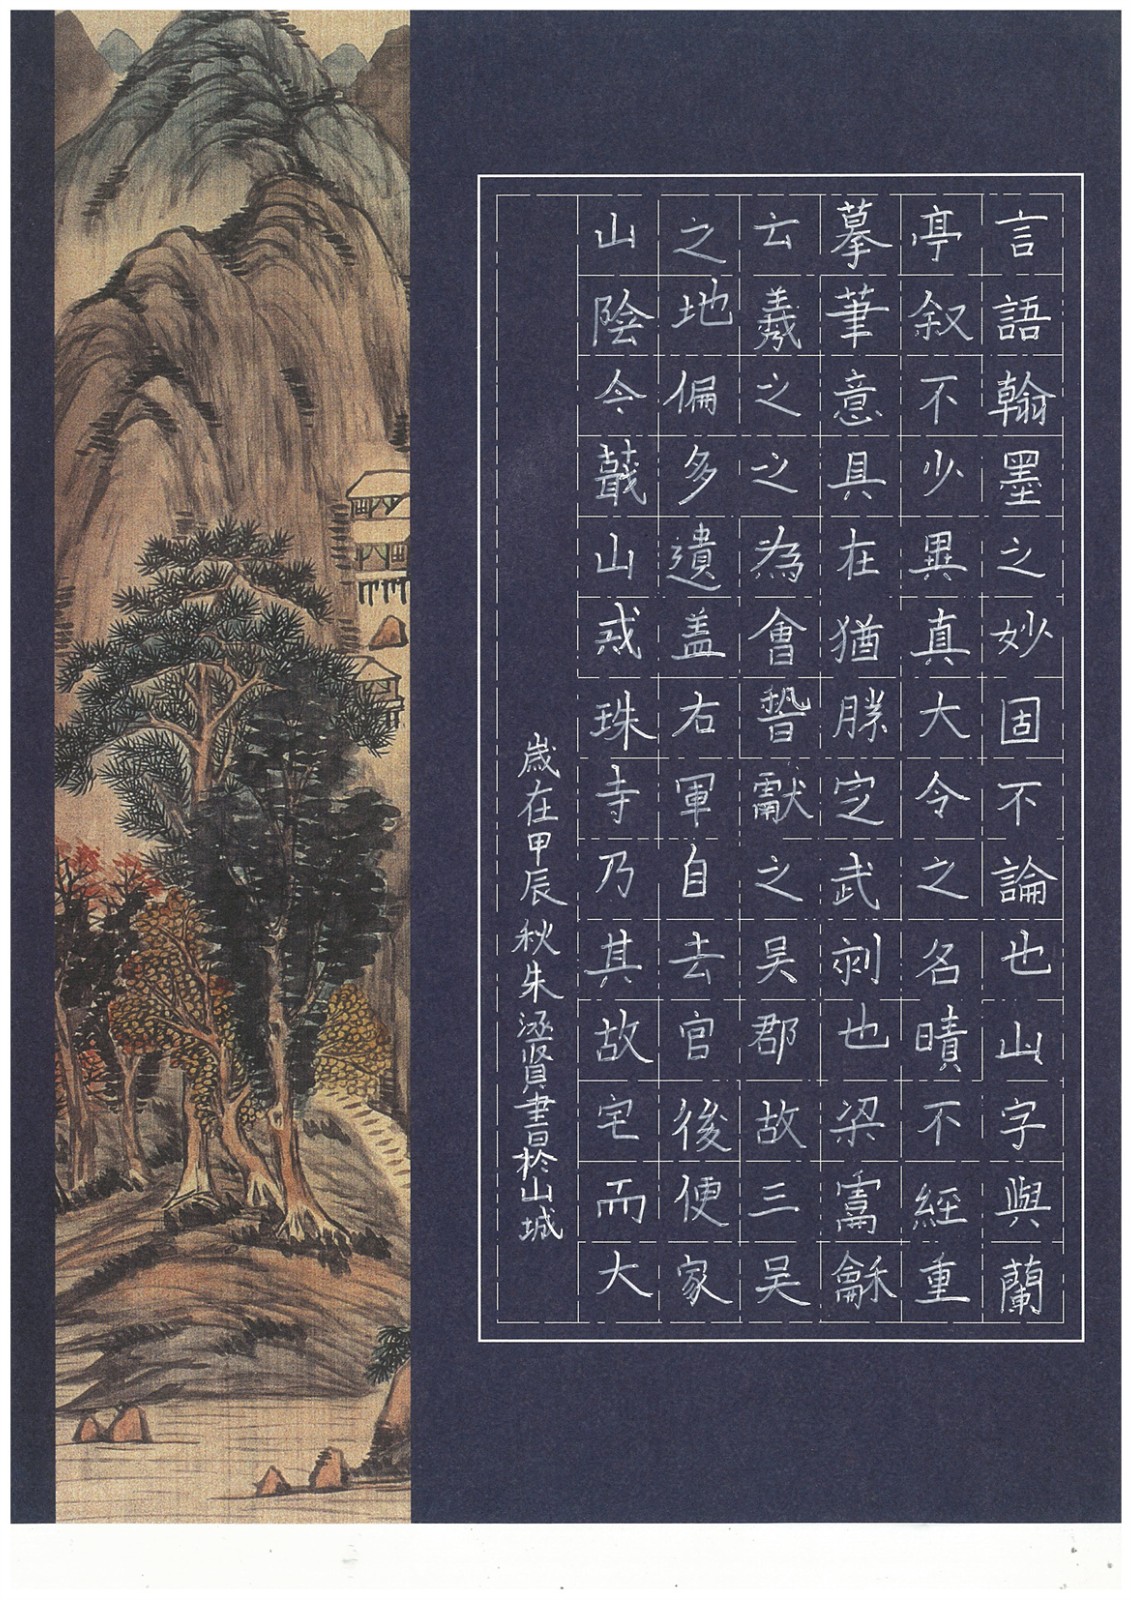 言語翰墨之妙固不論也山字與蘭
亭叙不少異真大令之名蹟不經重
摹筆意具在猶勝定武刻也梁虞龢
云羲之之為會稽獻之吳郡故三吳
之地偏多遺盖右軍自去官後便家
山陰今蕺山戒珠寺乃其故宅而大
歲在甲辰秋朱涵賢書於山城